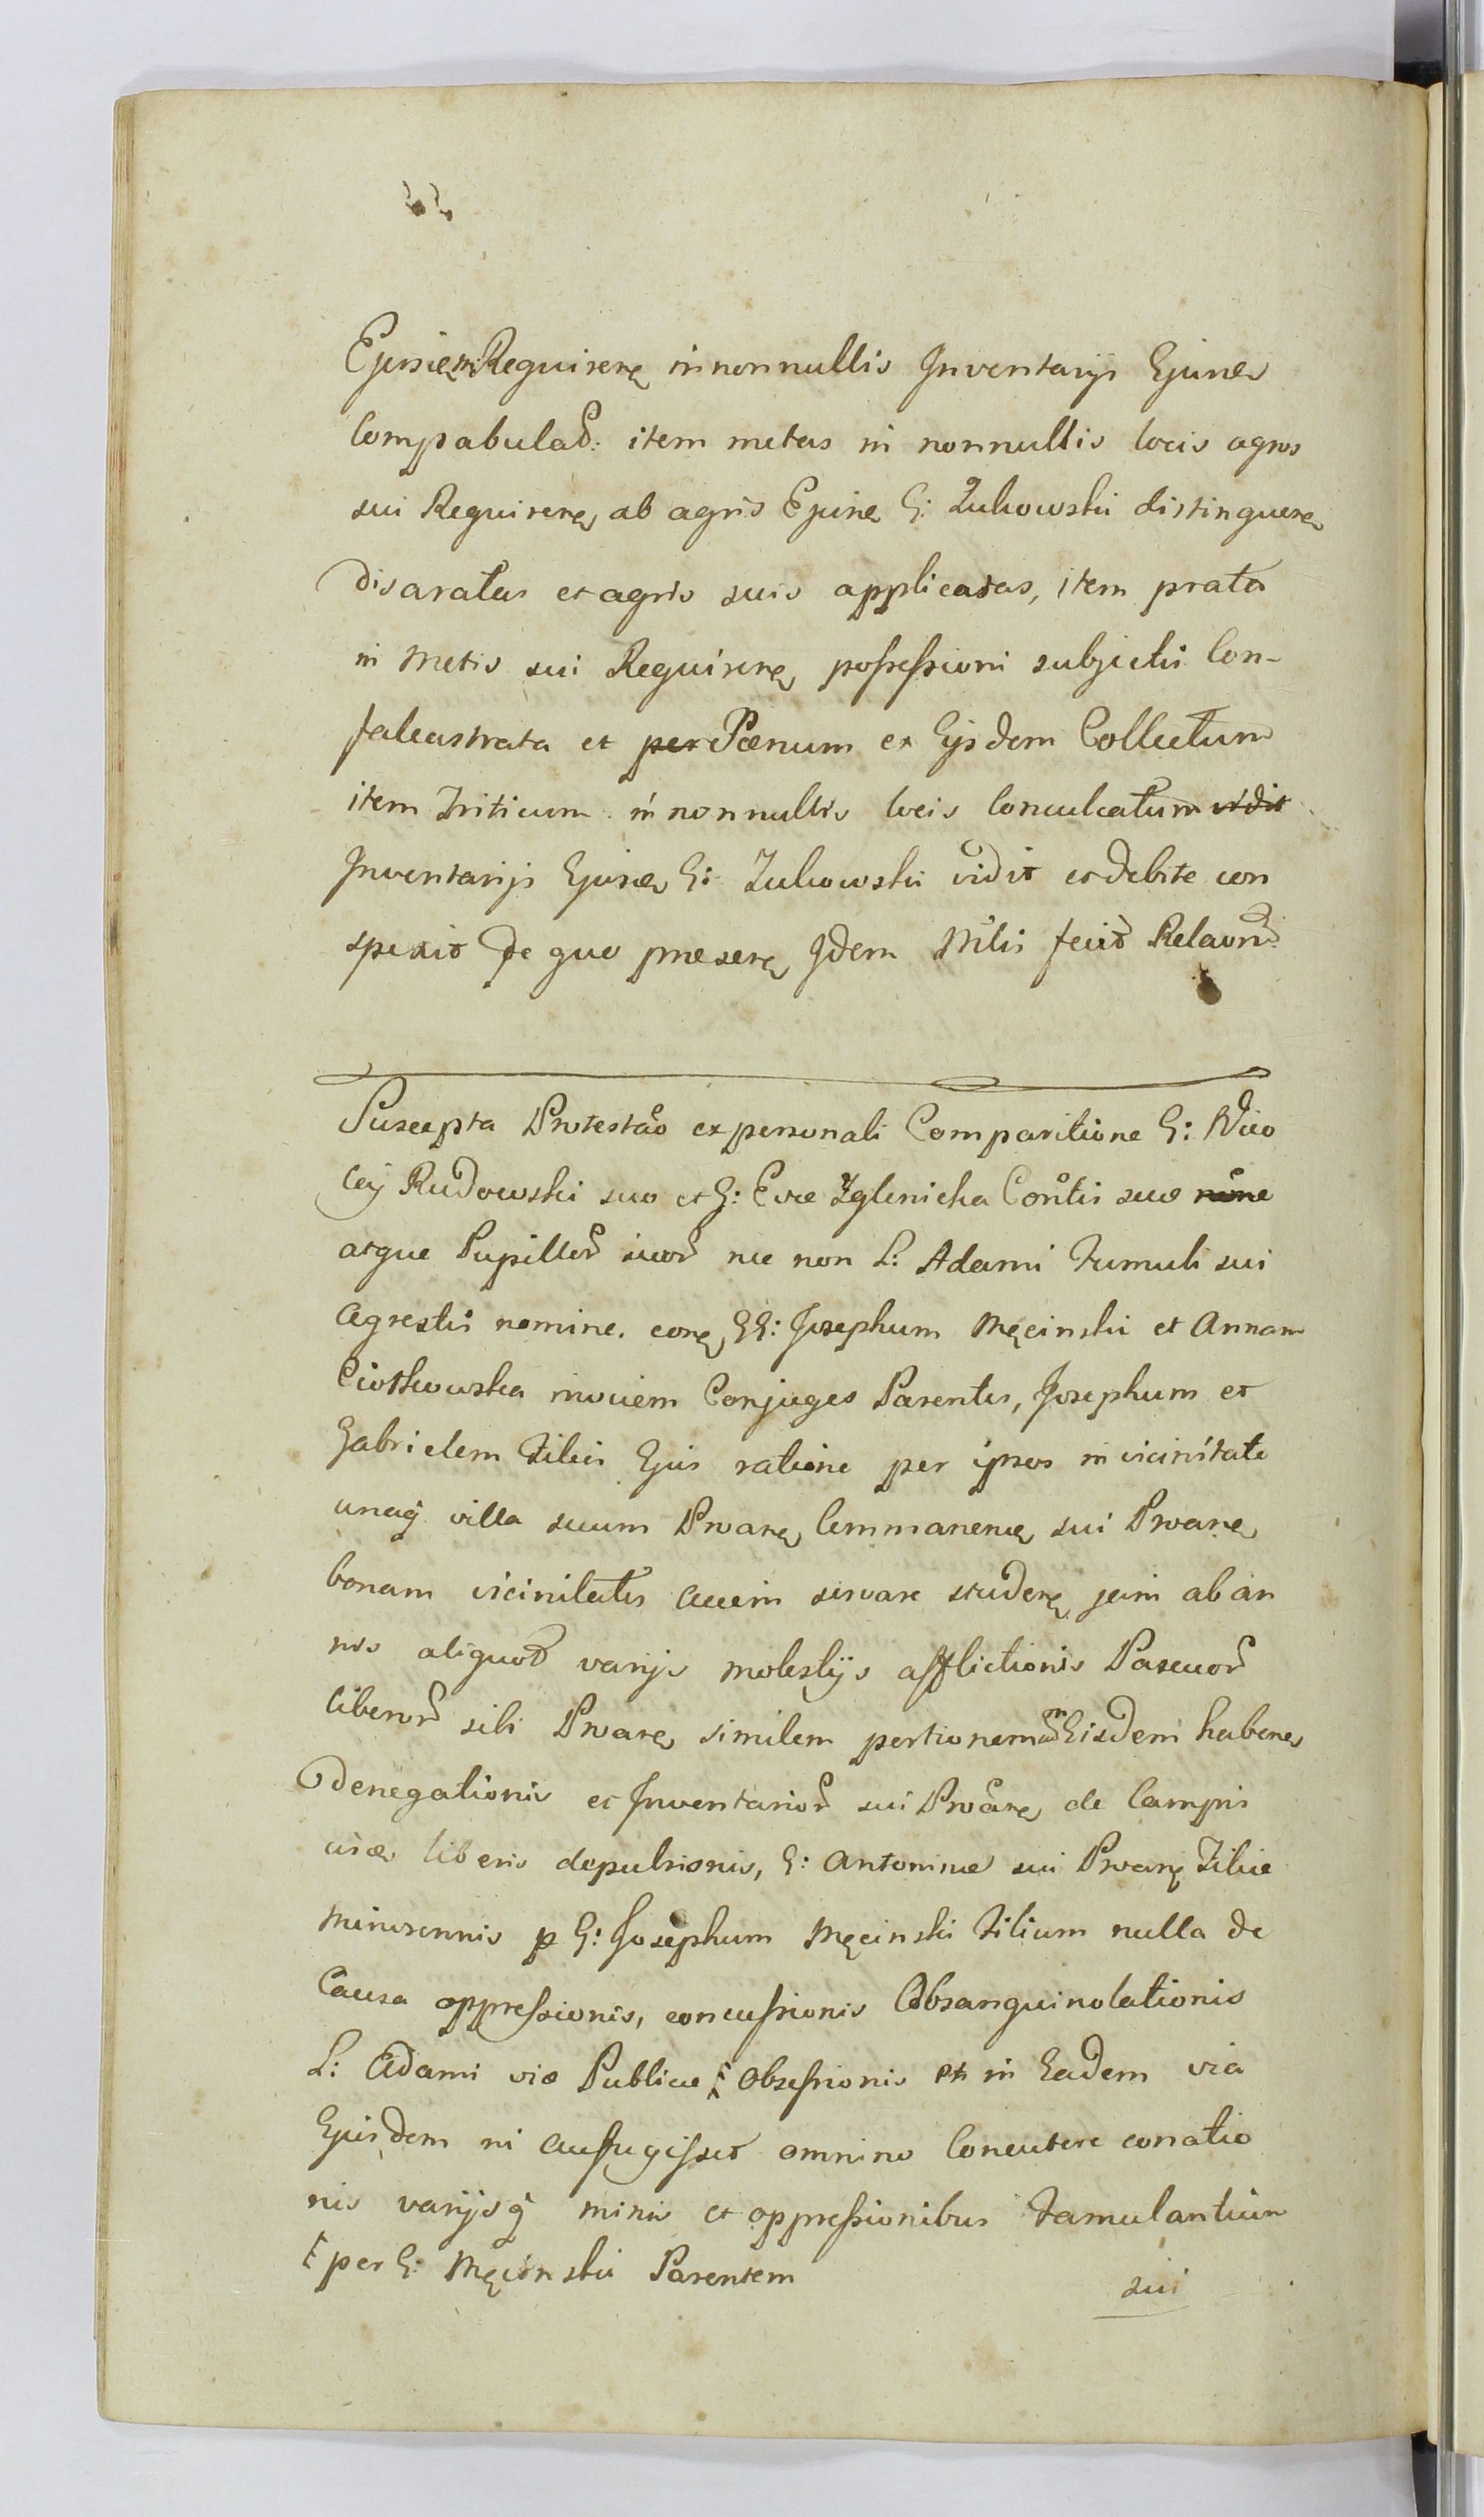 Requirere in nonnullis Inventarijs Ejusne
Compabulat: item metas in nonnullis locis agros
sui Requirere ab agris G: Zukowski distinguere
disaratas et agris suis applicatas, item prata
in metis sui Requirere possessioni subjectis Con-
falcastrata et per Foenum ex Eisdem Collectum
item Triticum in nonnullis locis Conculcatum vidit
Inventarijs G: Zukowski vidit et debite con
spexit de quo praesere Idem Mlis fecit Relaone
Suscepta Protestao ex personali Comparitione G:
Rudowski suo et G: Evae Zglenicka Contis suae nune
atque Pupillor suor nec non L: Adami Famuli sui
agrestis nomine. cone GG: Josephum Męcinski et Annam
Ciołkowska invicem Conjuges Parentes, Josephum et
Gabrielem Filios Ejus ratione per ipsos in vicinitate
unaq villa secum Proane Commanene sui Proane
bonam vicinitatis servare studene jam ab an
nis aliquot varijs molestijs afflictionis Pascuor
liberor sibi Proane similem portionem Eisdem habene
denegationis et Inventarior sui Proane de Campis
liberis depulsionis, G: Antoninae sui Proane Filiae
minorennis p G: Josephum Męcinski Filium nulla de
Causa oppressionis, concussionis Obsanguinolationis
L: Adami viae Publicae obsessionis et in Eadem via
Ejusdem ni aufugisset omnino Concutere conatio
nis varijsq minis et oppressionibus Famulantium
per G: Męcinski Parentem
sui